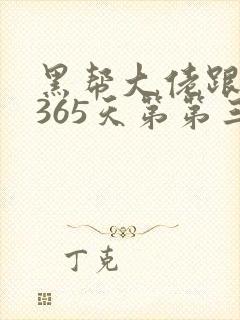 黑帮大佬跟
365天第第三
丁克